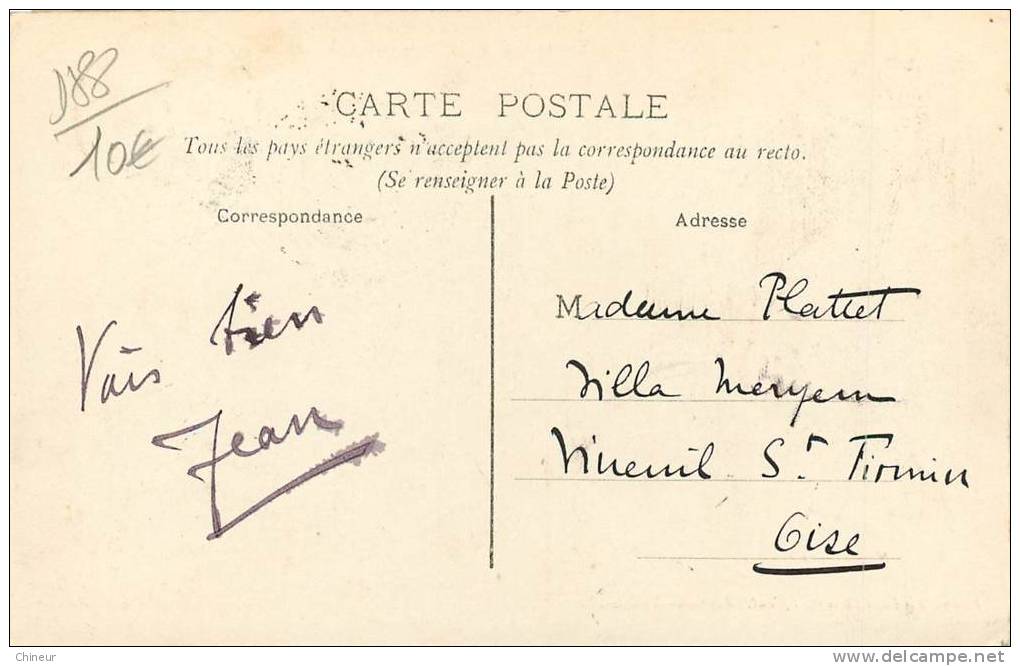 D88
10€
CARTE POSTALE
Tous les pays étrangers n'acceptent pas la correspondance au recto.
(Se renseigner à la Poste)
Correspondance
Adresse
Vais bien
Jean
Madame Plattet
Villa Meryem
Vineuil St. Firmin
Oise
Chineur
www.delcampe.net